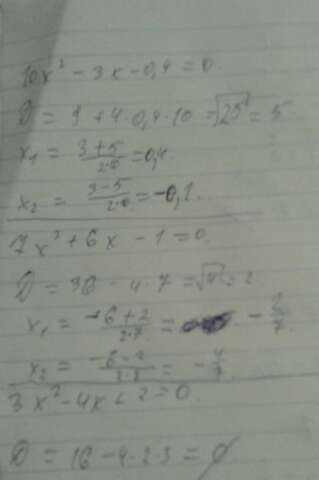 10x² - 3x - 0,4 = 0.
D = 9 + 4 · 0,4 · 10 = √25 = 5
x₁ = (3+5)/(2·10) = 0,4.
x₂ = (3-5)/(2·10) = -0,1.
7x² + 6x - 1 = 0.
D = 36 - 4 · 7 = √4 = 2
x₁ = (-6+2)/(2·7) = - 2/7.
x₂ = (-6-2)/(2·7) = - 4/7.
3x² - 4x + 2 = 0.
D = 16 - 4 · 2 · 3 = ∅